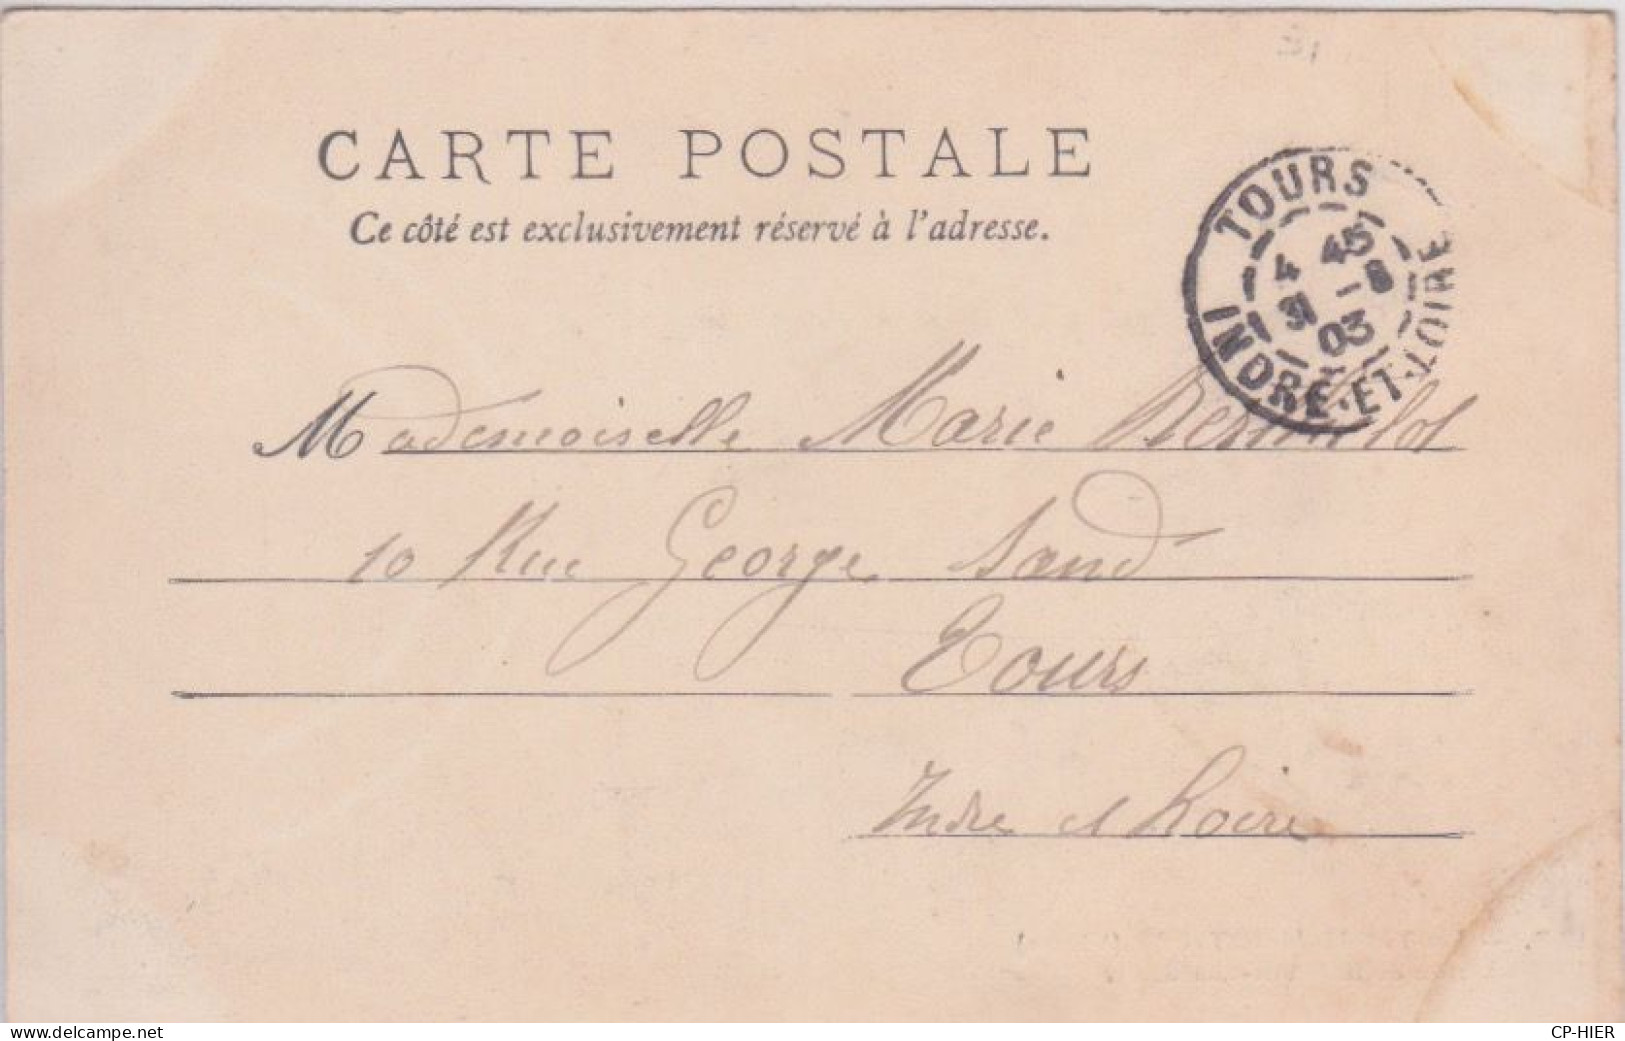 CARTE POSTALE
Ce côté est exclusivement réservé à l'adresse.
TOURS
4 45
31 -8
03
INDRE-ET-LOIRE
Mademoiselle Marie
10 Rue George Sand
Tours
Indre et Loire
www.delcampe.net
CP-HIER